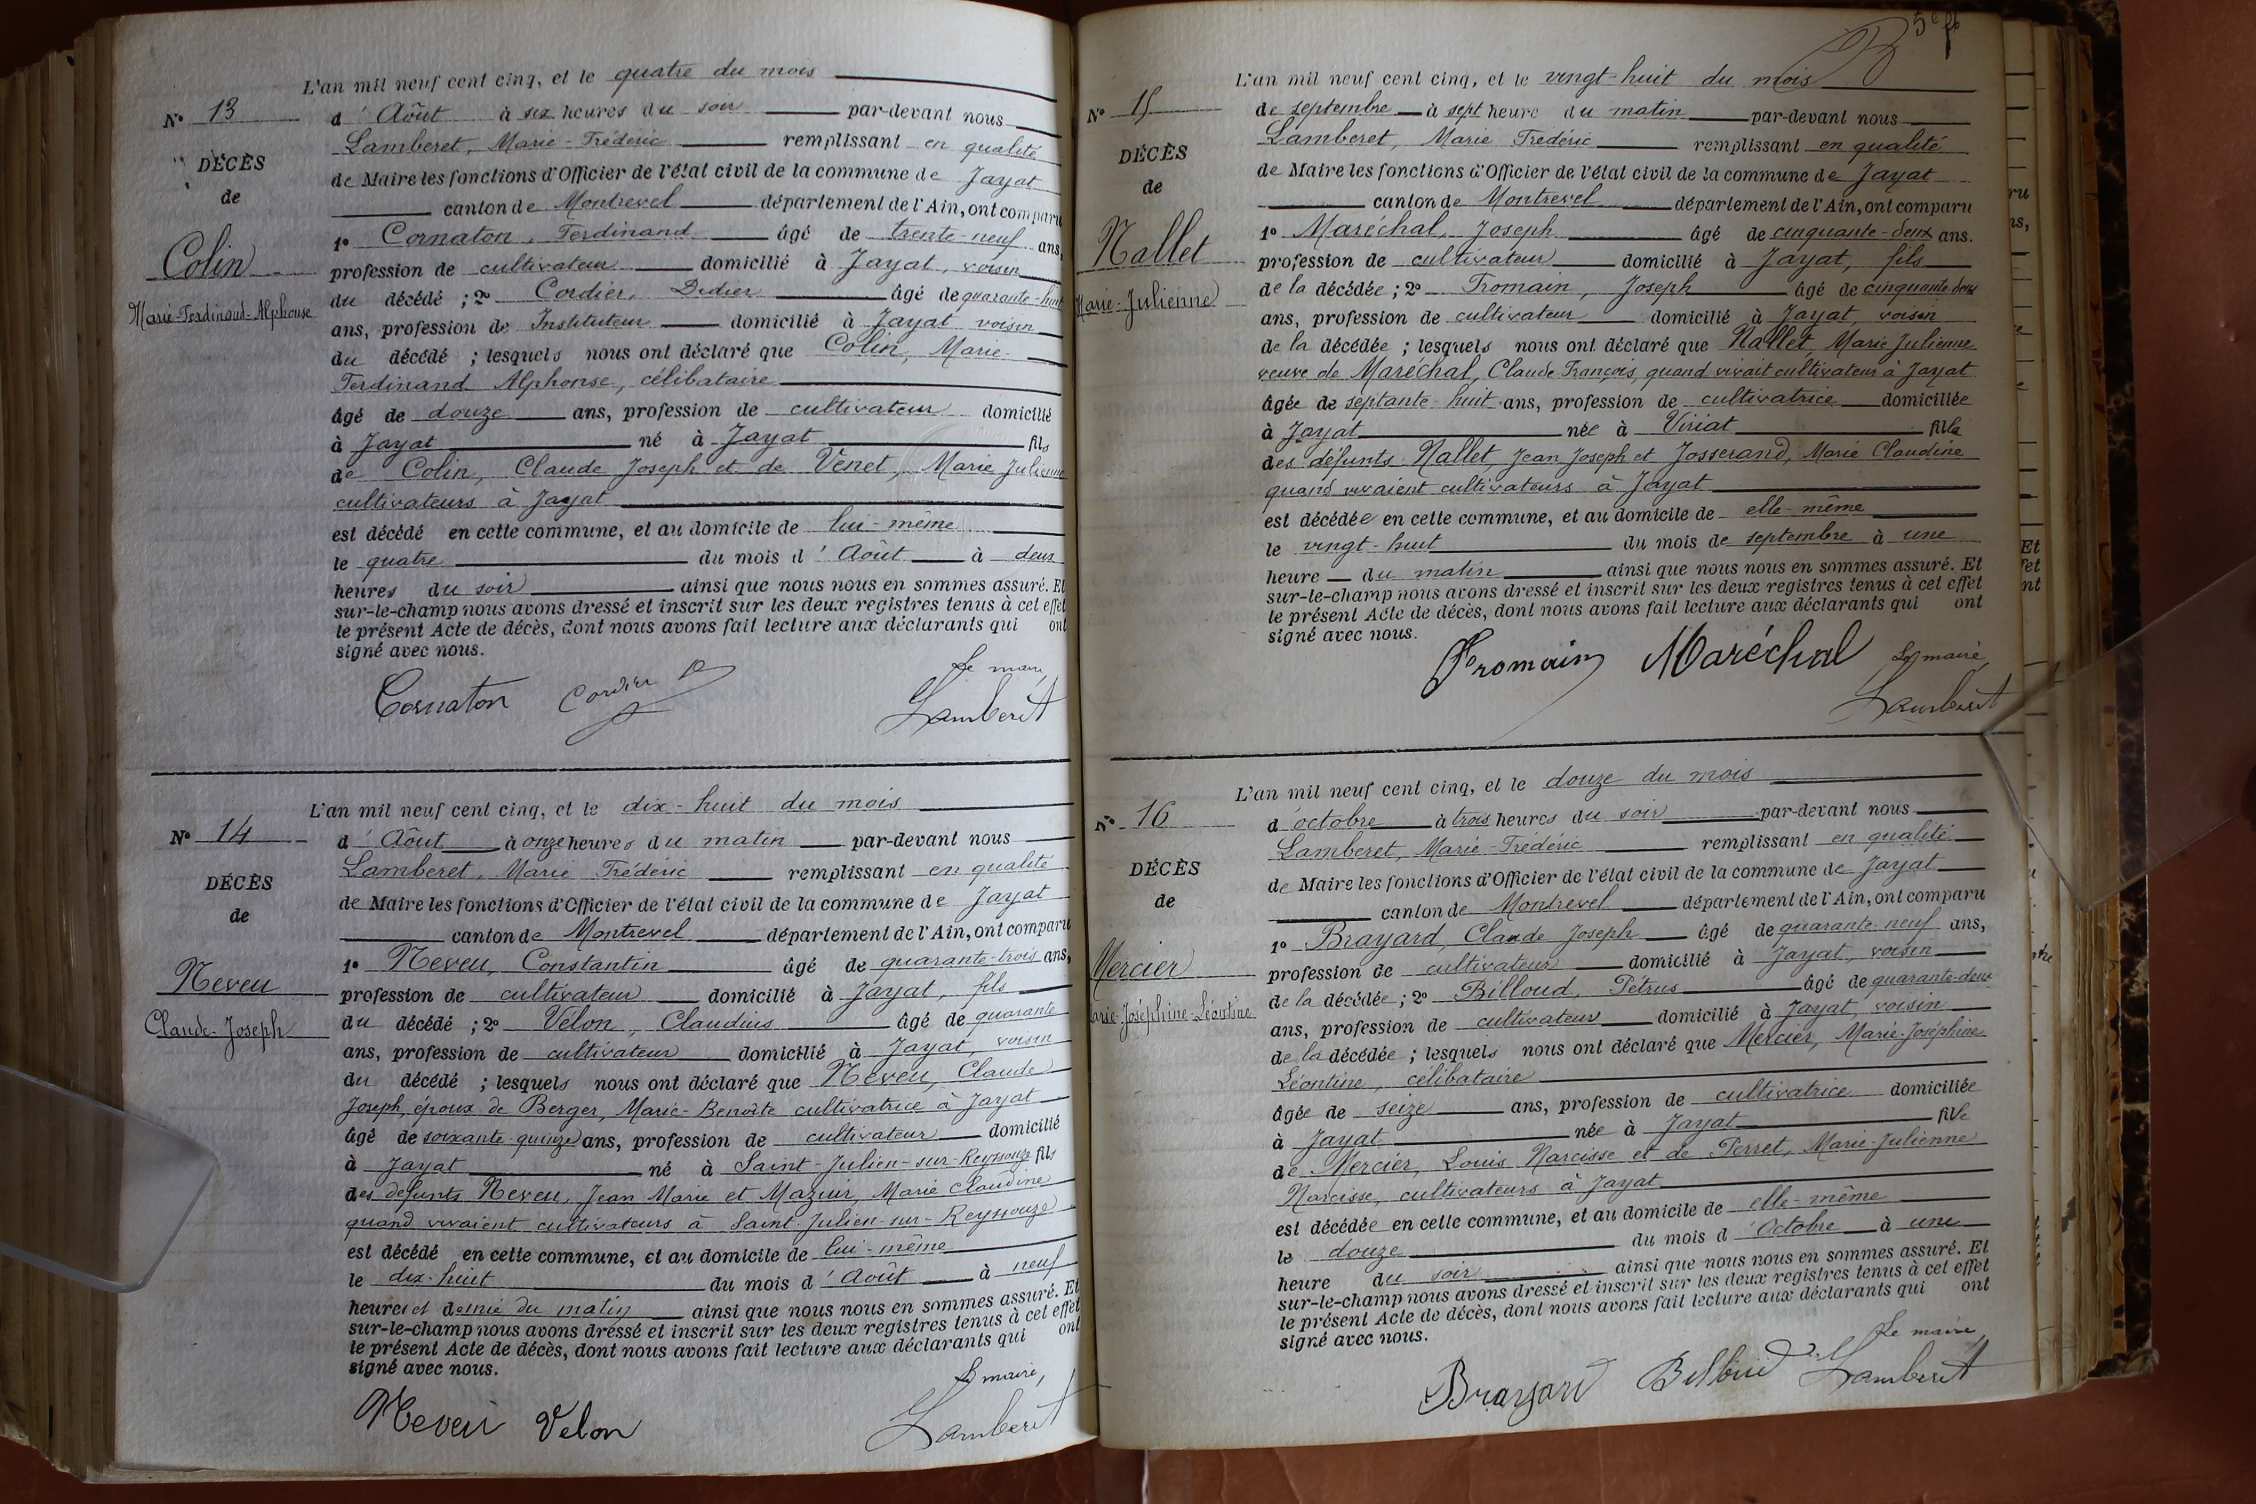 L'an mil neuf cent cinq, et le quatre du mois
N° 13
d'Août à six heures du soir par-devant nous
Lamberet, Marie-Frédéric remplissant en qualité
DÉCÈS
de Maire les fonctions d'Officier de l'état civil de la commune de Jayat
de
canton de Montrevel département de l'Ain, ont comparu
Colin
1° Cornaton, Ferdinand âgé de trente-neuf ans,
profession de cultivateur domicilié à Jayat, voisin
Marie-Ferdinand-Alphonse
du décédé ; 2° Cordier, Didier âgé de quarante-huit
ans, profession de Instituteur domicilié à Jayat voisin
du décédé ; lesquels nous ont déclaré que Colin, Marie-
Ferdinand Alphonse, célibataire
âgé de douze ans, profession de cultivateur domicilié
à Jayat né à Jayat fils
de Colin, Claude Joseph et de Venet, Marie Julienne
cultivateurs à Jayat
est décédé en cette commune, et au domicile de lui-même
le quatre du mois d'Août à deux
heures du soir ainsi que nous nous en sommes assuré. Et
sur-le-champ nous avons dressé et inscrit sur les deux registres tenus à cet effet
le présent Acte de décès, dont nous avons fait lecture aux déclarants qui ont
signé avec nous.
Le maire,
Cornaton Cordier D Lamberet
L'an mil neuf cent cinq, et le dix-huit du mois
N° 14
d'Août à onze heures du matin par-devant nous
Lamberet, Marie Frédéric remplissant en qualité
DÉCÈS
de Maire les fonctions d'Officier de l'état civil de la commune de Jayat
de
canton de Montrevel département de l'Ain, ont comparu
1° Neveu, Constantin âgé de quarante-trois ans,
Neveu
profession de cultivateur domicilié à Jayat, fils
Claude-Joseph
du décédé ; 2° Velon, Claudius âgé de quarante
ans, profession de cultivateur domicilié à Jayat voisin
du décédé ; lesquels nous ont déclaré que Neveu, Claude
Joseph, époux de Berger, Marie-Benoîte cultivatrice à Jayat
âgé de soixante-quinze ans, profession de cultivateur domicilié
à Jayat né à Saint-Julien-sur-Reyssouze fils
des défunts Neveu, Jean Marie et Mazuir, Marie Claudine
quand vivaient cultivateurs à Saint-Julien-sur-Reyssouze
est décédé en cette commune, et au domicile de lui-même
le dix-huit du mois d'Août à neuf
heures et demie du matin ainsi que nous nous en sommes assuré. Et
sur-le-champ nous avons dressé et inscrit sur les deux registres tenus à cet effet
le présent Acte de décès, dont nous avons fait lecture aux déclarants qui ont
signé avec nous.
Le maire,
Neveu Velon Lamberet
L'an mil neuf cent cinq, et le vingt-huit du mois
N° 15
de septembre à sept heure du matin par-devant nous
Lamberet, Marie Frédéric remplissant en qualité
DÉCÈS
de Maire les fonctions d'Officier de l'état civil de la commune de Jayat
de
canton de Montrevel département de l'Ain, ont comparu
Nallet
1° Maréchal, Joseph âgé de cinquante-deux ans.
profession de cultivateur domicilié à Jayat, fils
Marie-Julienne
de la décédée ; 2° Fromain, Joseph âgé de cinquante deux
ans, profession de cultivateur domicilié à Jayat, voisin
de la décédée ; lesquels nous ont déclaré que Nallet, Marie Julienne
veuve de Maréchal, Claude François, quand vivait cultivateur à Jayat
âgée de septante-huit ans, profession de cultivatrice domiciliée
à Jayat née à Viriat fille
des défunts Nallet, Jean Joseph et Josserand, Marie Claudine
quand vivaient cultivateurs à Jayat
est décédée en cette commune, et au domicile de elle-même
le vingt-huit du mois de septembre à une
heure du matin ainsi que nous nous en sommes assuré. Et
sur-le-champ nous avons dressé et inscrit sur les deux registres tenus à cet effet
le présent Acte de décès, dont nous avons fait lecture aux déclarants qui ont
signé avec nous.
Fromain Maréchal Le maire,
Lamberet
L'an mil neuf cent cinq, et le douze du mois
N° 16
d'octobre à trois heures du soir par-devant nous
Lamberet, Marie-Frédéric remplissant en qualité
DÉCÈS
de Maire les fonctions d'Officier de l'état civil de la commune de Jayat
de
canton de Montrevel département de l'Ain, ont comparu
1° Brayard, Claude Joseph âgé de quarante-neuf ans,
Mercier
profession de cultivateur domicilié à Jayat, voisin
Marie-Joséphine-Léontine
de la décédée ; 2° Billoud, Pétrus âgé de quarante-deux
ans, profession de cultivateur domicilié à Jayat, voisin
de la décédée ; lesquels nous ont déclaré que Mercier, Marie-Joséphine
Léontine, célibataire
âgée de seize ans, profession de cultivatrice domiciliée
à Jayat née à Jayat fille
de Mercier, Louis Narcisse et de Perret, Marie-Julienne
Narcisse, cultivateurs à Jayat
est décédée en cette commune, et au domicile de elle-même
le douze du mois d'Octobre à une
heure du soir ainsi que nous nous en sommes assuré. Et
sur-le-champ nous avons dressé et inscrit sur les deux registres tenus à cet effet
le présent Acte de décès, dont nous avons fait lecture aux déclarants qui ont
signé avec nous.
Le maire,
Brayard Billoud Lamberet